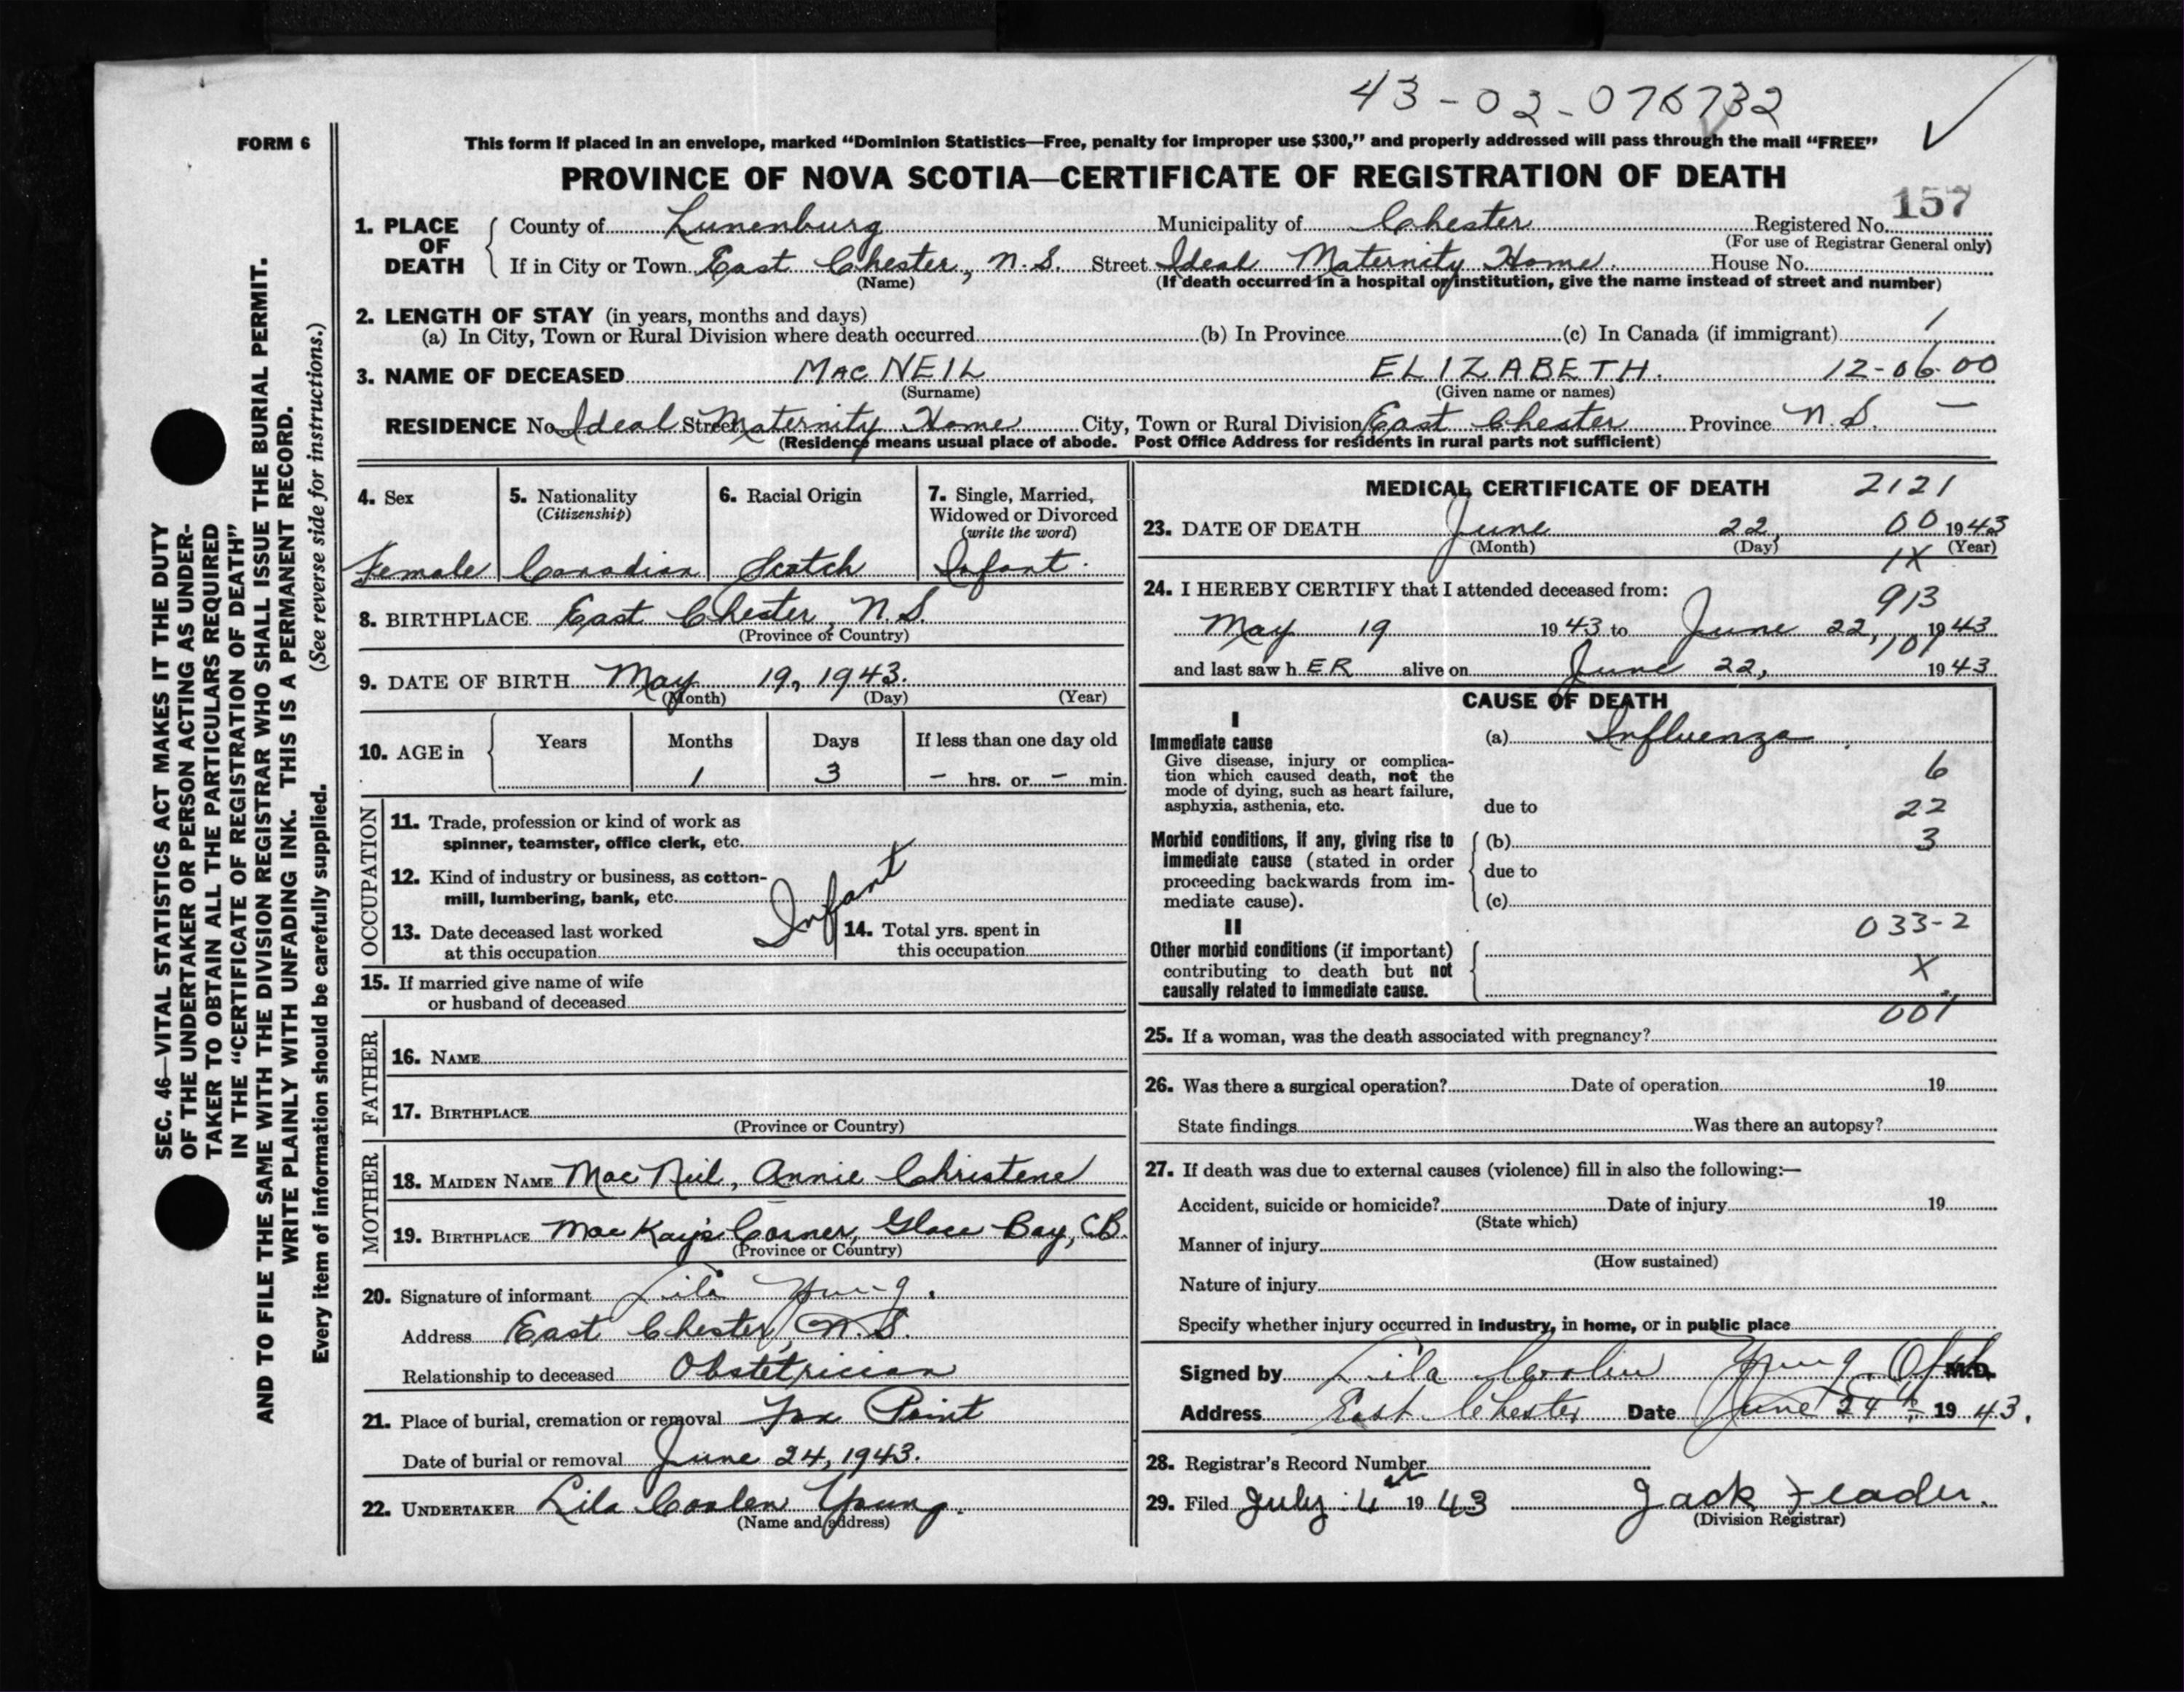 43-02-076732
FORM 6
This form if placed in an envelope, marked "Dominion Statistics—Free, penalty for improper use $300," and properly addressed will pass through the mail "FREE"
PROVINCE OF NOVA SCOTIA—CERTIFICATE OF REGISTRATION OF DEATH
157
1. PLACE OF DEATH County of Lunenburg Municipality of Chester Registered No.
(For use of Registrar General only)
If in City or Town East Chester, N.S. Street Ideal Maternity Home. House No.
(Name) (If death occurred in a hospital or institution, give the name instead of street and number)
2. LENGTH OF STAY (in years, months and days)
(a) In City, Town or Rural Division where death occurred (b) In Province (c) In Canada (if immigrant) 1
3. NAME OF DECEASED MAC NEIL ELIZABETH. 12-06-00
(Surname) (Given name or names)
RESIDENCE No. Ideal Street Maternity Home City, Town or Rural Division East Chester Province N.S. —
(Residence means usual place of abode. Post Office Address for residents in rural parts not sufficient)
SEC. 46—VITAL STATISTICS ACT MAKES IT THE DUTY
OF THE UNDERTAKER OR PERSON ACTING AS UNDER-
TAKER TO OBTAIN ALL THE PARTICULARS REQUIRED
IN THE "CERTIFICATE OF REGISTRATION OF DEATH"
AND TO FILE THE SAME WITH THE DIVISION REGISTRAR WHO SHALL ISSUE THE BURIAL PERMIT.
WRITE PLAINLY WITH UNFADING INK. THIS IS A PERMANENT RECORD.
Every item of information should be carefully supplied. (See reverse side for instructions.)
4. Sex 5. Nationality 6. Racial Origin 7. Single, Married,
(Citizenship) Widowed or Divorced
(write the word)
Female Canadian Scotch Infant.
8. BIRTHPLACE East Chester, N.S.
(Province or Country)
9. DATE OF BIRTH May 19, 1943.
(Month) (Day) (Year)
10. AGE in Years Months Days If less than one day old
1 3 – hrs. or – min.
OCCUPATION
11. Trade, profession or kind of work as
spinner, teamster, office clerk, etc.
12. Kind of industry or business, as cotton-
mill, lumbering, bank, etc.
Infant
13. Date deceased last worked
at this occupation
14. Total yrs. spent in
this occupation
15. If married give name of wife
or husband of deceased
FATHER
16. NAME
17. BIRTHPLACE
(Province or Country)
MOTHER
18. MAIDEN NAME MacNeil, Annie Christene
19. BIRTHPLACE MacKay's Corner, Glace Bay, CB.
(Province or Country)
20. Signature of informant Lila Young.
Address East Chester, N.S.
Relationship to deceased Obstetrician
21. Place of burial, cremation or removal Fox Point
Date of burial or removal June 24, 1943.
22. UNDERTAKER Lila Coolen Young.
(Name and address)
MEDICAL CERTIFICATE OF DEATH 2121
23. DATE OF DEATH June 22, 00 1943
(Month) (Day) (Year)
1X
24. I HEREBY CERTIFY that I attended deceased from:
913
May 19 1943 to June 22, 1943
101
and last saw hER alive on June 22, 1943.
CAUSE OF DEATH
I
Immediate cause (a) Influenza
Give disease, injury or complica-
tion which caused death, not the
mode of dying, such as heart failure,
asphyxia, asthenia, etc. due to
6
22
Morbid conditions, if any, giving rise to (b) 3
immediate cause (stated in order
proceeding backwards from im- due to
mediate cause). (c)
II 033-2
Other morbid conditions (if important)
contributing to death but not X
causally related to immediate cause.
001
25. If a woman, was the death associated with pregnancy?
26. Was there a surgical operation? Date of operation 19
State findings Was there an autopsy?
27. If death was due to external causes (violence) fill in also the following:—
Accident, suicide or homicide? Date of injury 19
(State which)
Manner of injury
(How sustained)
Nature of injury
Specify whether injury occurred in industry, in home, or in public place
Signed by Lila Coolen Young. M.D.
Address East Chester Date June 24th 1943.
28. Registrar's Record Number
29. Filed July 4 1943 Jack
(Division Registrar)